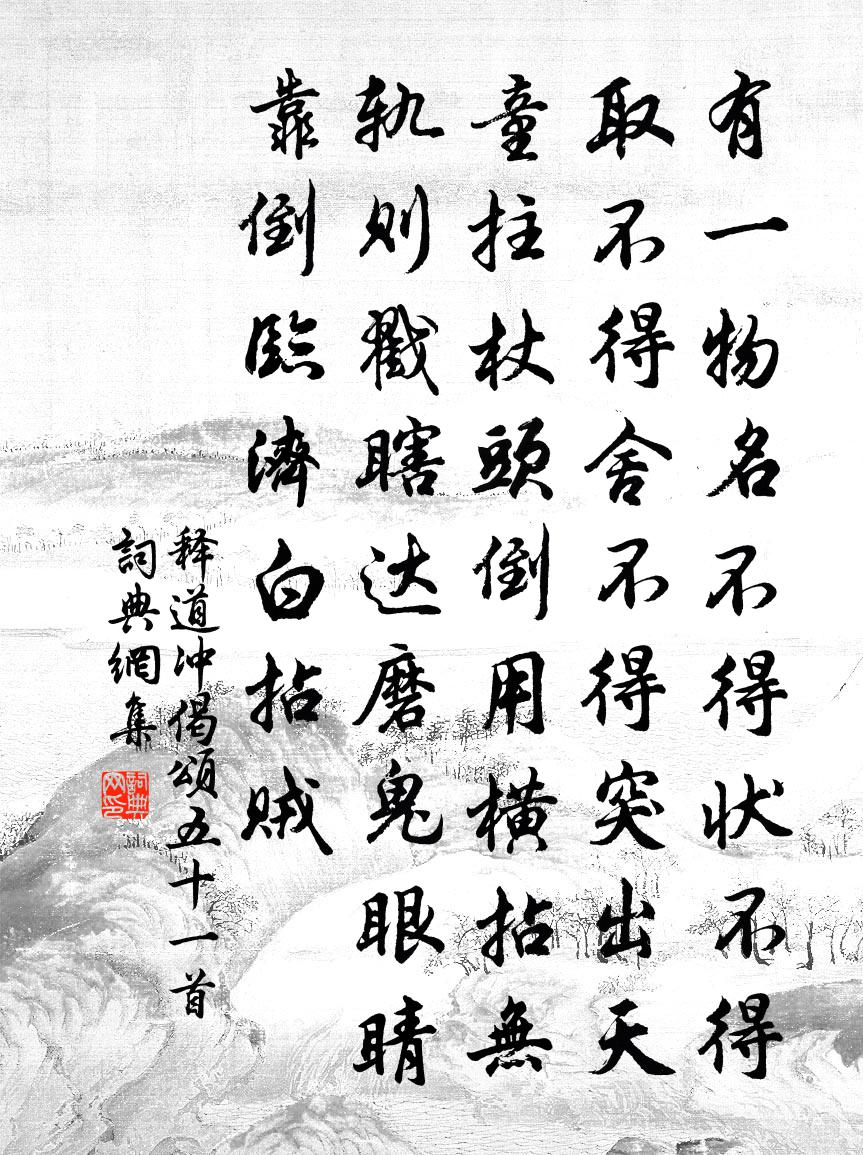 有一物名不得状不得
取不得舍不得突出天
童拄杖頭倒用横拈無
轨则戳瞎达磨鬼眼睛
靠倒臨濟白拈贼
释道冲偈颂五十一首
詞典網集
詞典网印